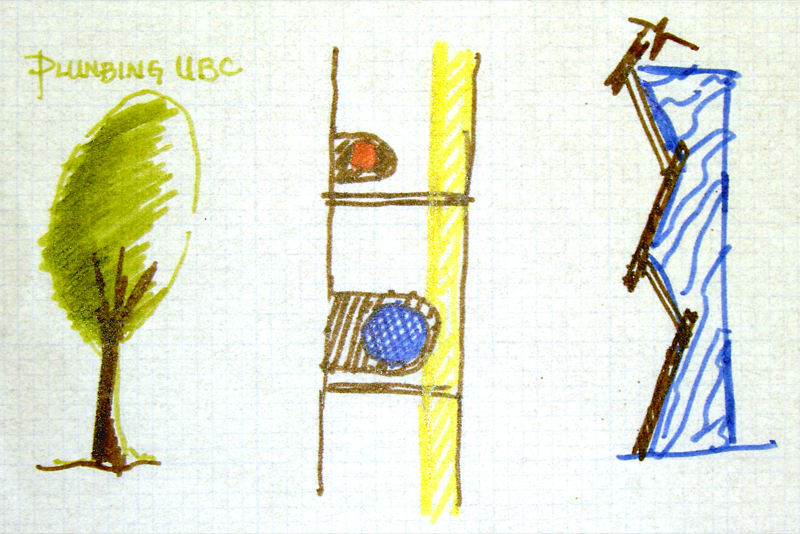 PLUNBING UBC